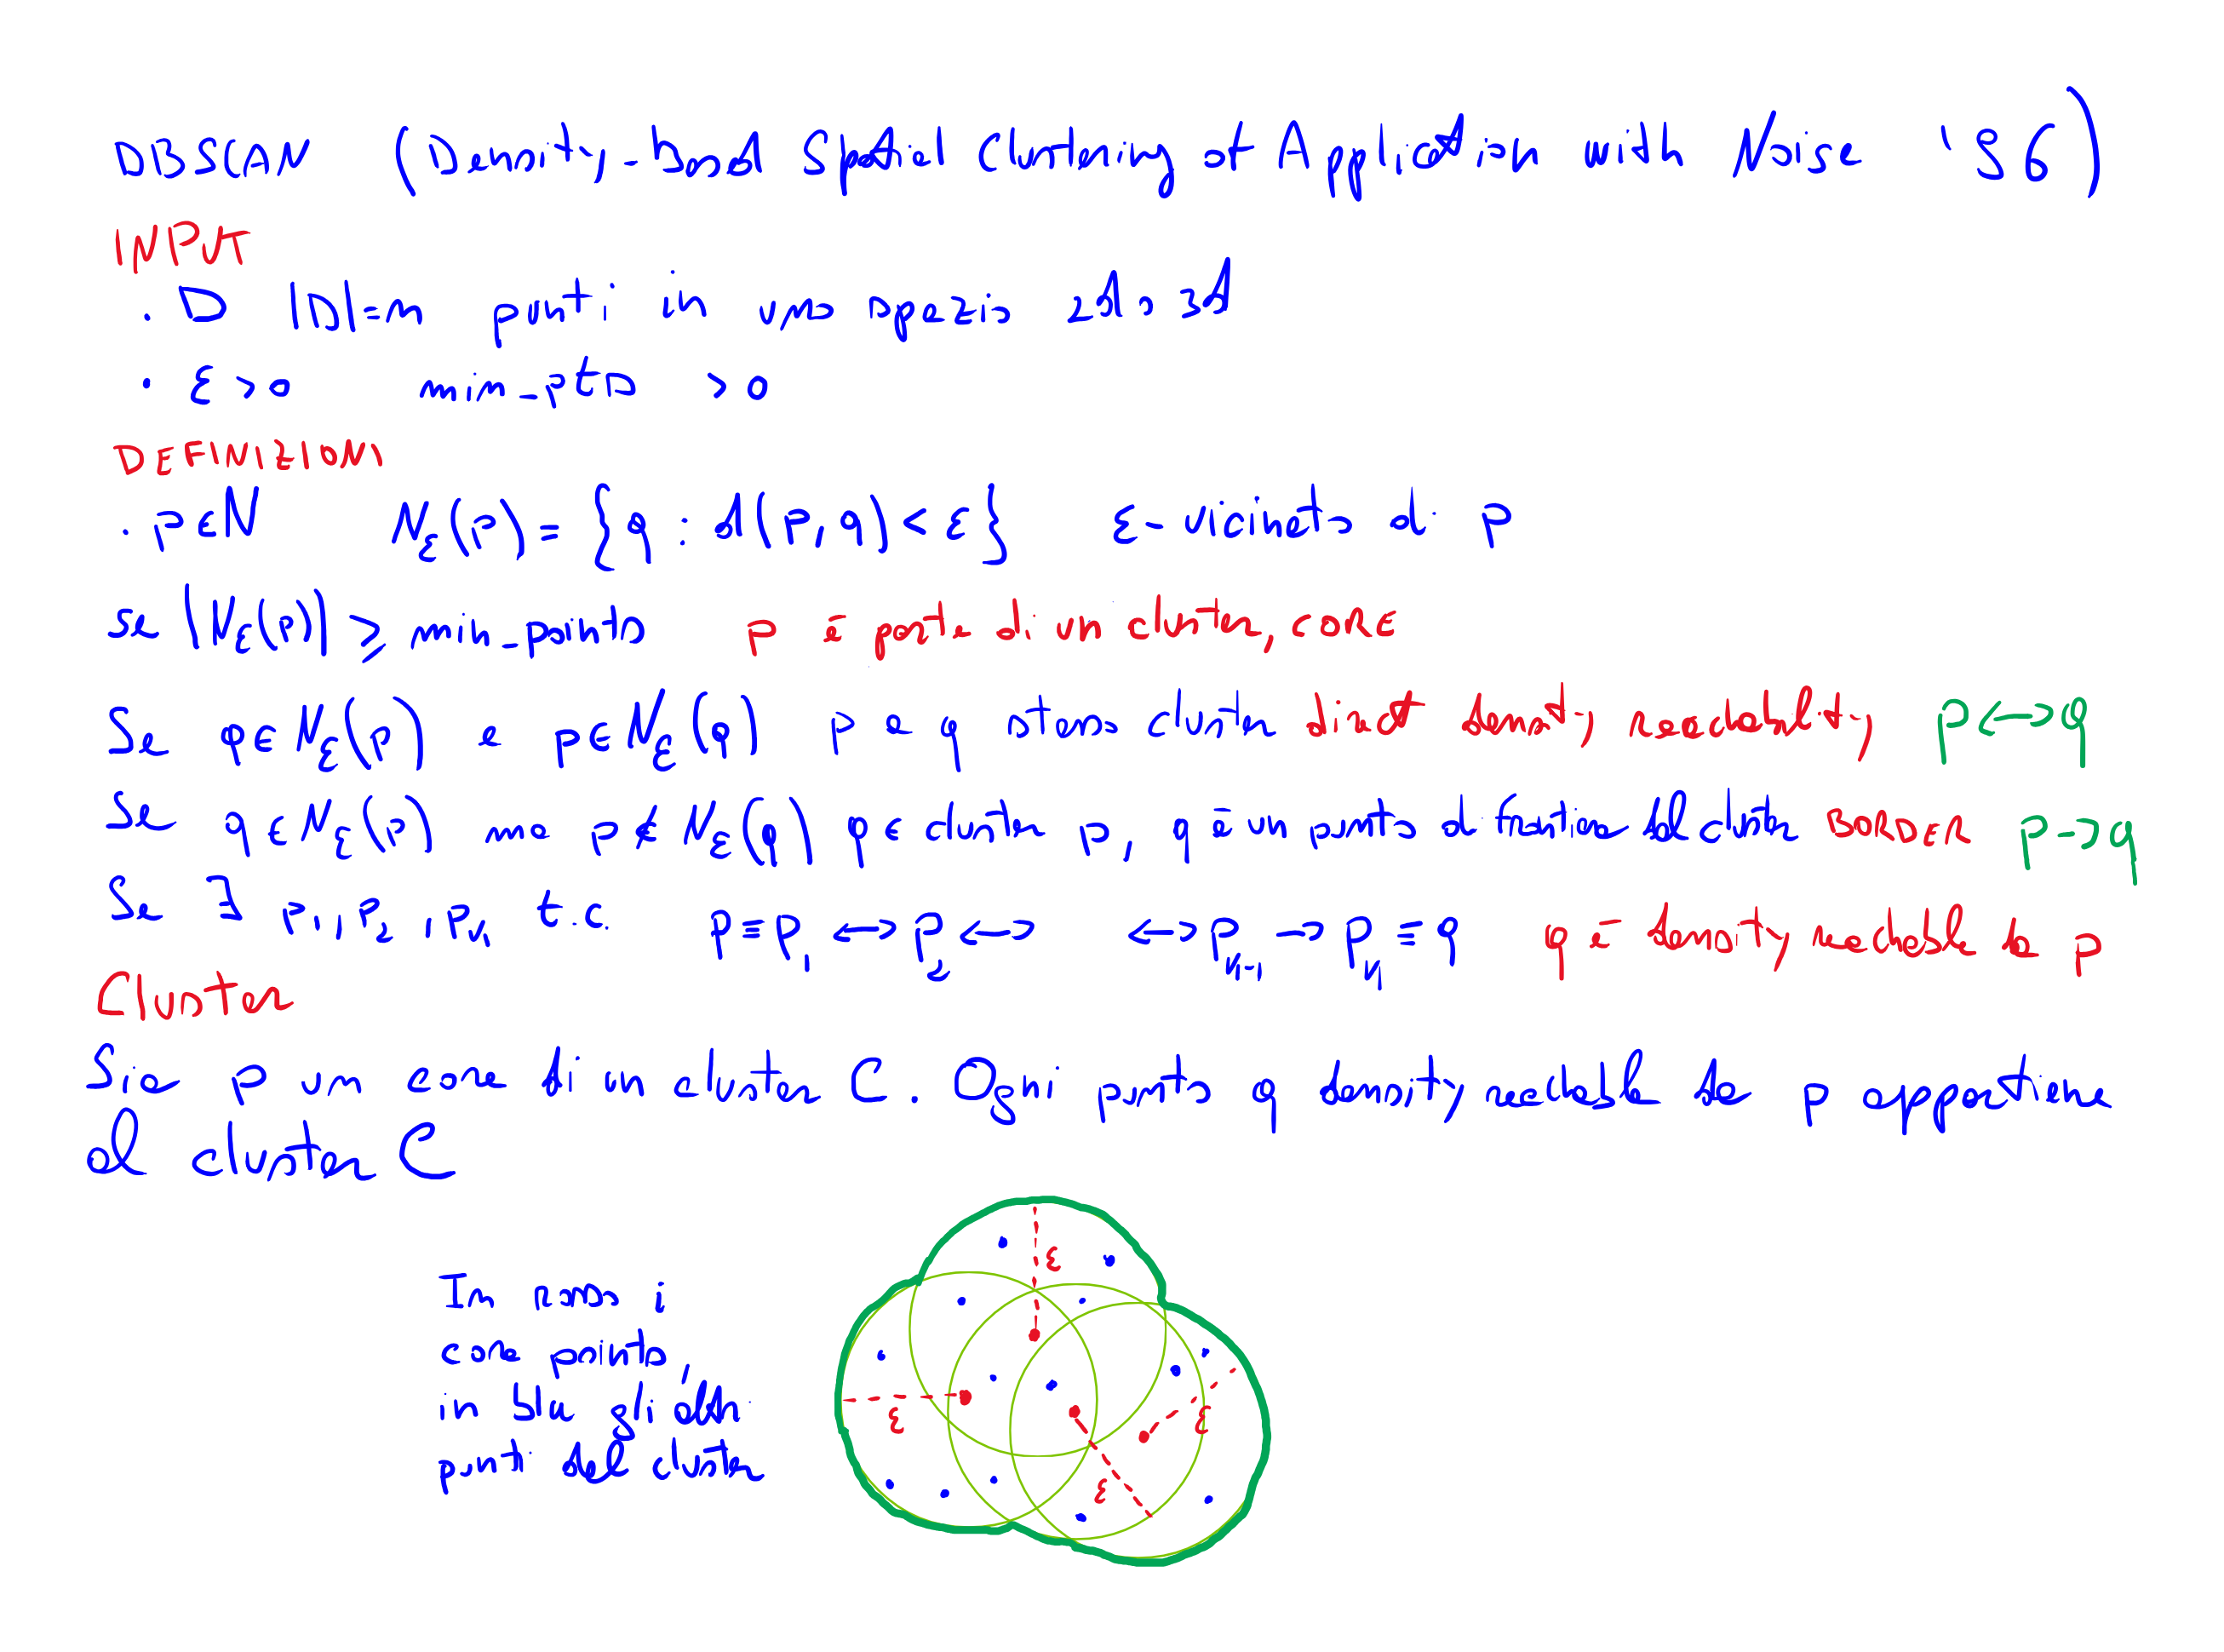 DBSCAN (Density-based Spatial Clustering of Application with Noise '96)
INPUT
. D |D|=n punti in uno spazio 2d o 3d
. ε>0 min_pts >0
DEFINIZIONI
. p∈N Nε(p) = {q : d(p,q) < ε} ε-vicinato di p
se |Nε(p)| ≥ min_points p è parte di un cluster, CORE
Se q∈Nε(p) e p∈Nε(q) p e q stesso cluster direct density reachability p<->q
Se q∈Nε(p) ma p∉Nε(q) q∈ cluster p, q è un punto di frontiera del cluster BORDER p->q
Se ∃ p₁,p₂,pₙ t.c. p≡p₁<->p₂<-> <->pₙ₋₁->pₙ≡q q è density reachable da p
Cluster
Sia p un core di un cluster C. Ogni punto q density reachable da p appartiene
al cluster C
In rosso i
core points,
in blu gli altri
punti del cluster
ε
ε
ε
ε